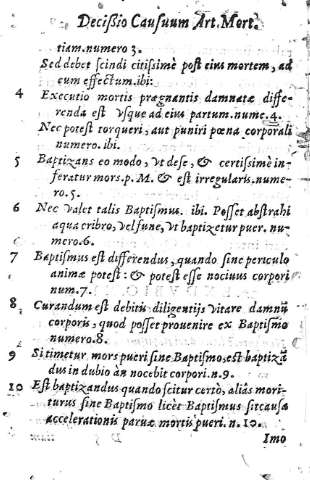 Decißio Causuum Art. Mort.
tiam. numero 3.
Sed debet scindi citissimè post eius mortem, ad
eum effectum. ibi:
4 Executio mortis prægnantis damnatæ diffe-
renda est vsque ad eius partum. nume. 4.
Nec potest torqueri, aut puniri pœna corporali
numero. ibi.
5 Baptizans eo modo, vt de se, & certissimè in-
feratur mors. p. M. & est irregularis. nume-
ro. 5.
6 Nec valet talis Baptismus. ibi. Posset abstrahi
aqua cribro, vel fune, vt baptizetur puer. nu-
mero. 6.
7 Baptismus est differendus, quando sine periculo
animæ potest: & potest esse nociuus corpori
num. 7.
8 Curandum est debitis diligentijs vitare damnũ
corporis, quod posset prouenire ex Baptismo
numero. 8.
9 Si timetur mors pueri sine Baptismo, est baptizã
dus in dubio àn nocebit corpori. n. 9.
10 Est baptizandus quando scitur certò, aliàs mori-
turus sine Baptismo licèt Baptismus sit causa
accelerationis paruæ mortis pueri. n. 10.
Imo